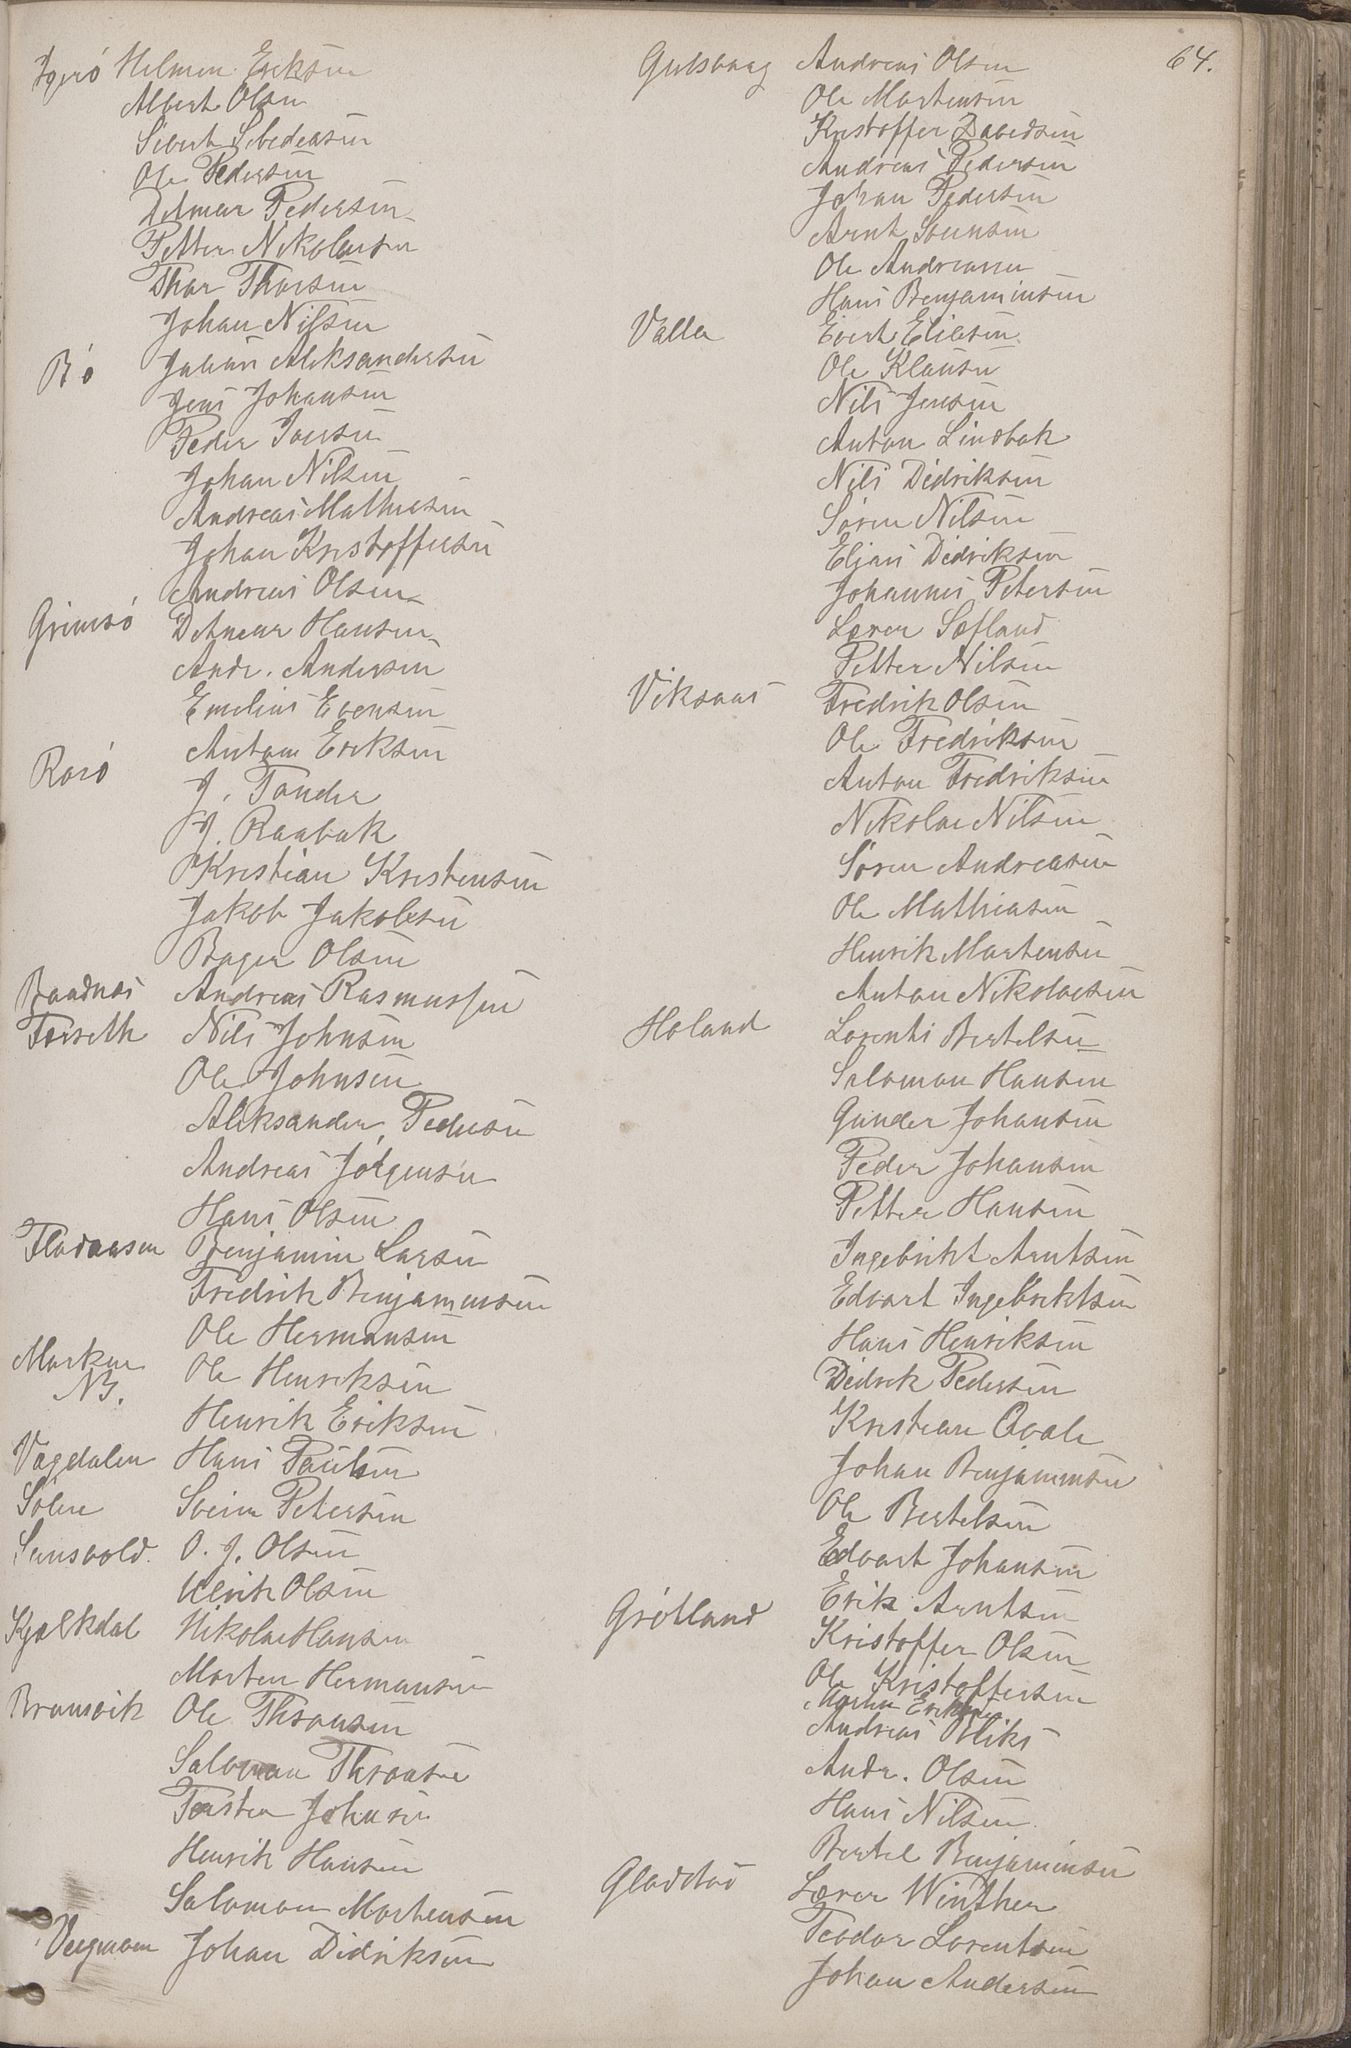 64.
Igerö Helmer Eriksen
Albert Olsen
Sivert Sivertsen
Ole Pedersen
Detmar Pedersen
Petter Nikolaisen
Thor Thorsen
Johan Nilsen
Bö Julius Aleksandersen
Jens Johansen
Peder Jonsen
Johan Nilsen
Andreas Mathiesen
Johan Kristoffersen
Andreas Olsen
Grimsö Detmar Hansen
Andr. Andersen
Emelius Evensen
Antom Eriksen
Rosö J. Tander
J. Raabak
Kristian Kristensen
Jakob Jakobsen
Birger Olsen
Baadnæs Andreas Rasmussen
Forseth Nils Johnsen
Ole Johnsen
Aleksander Pedersen
Andreas Jörgensen
Hans Olsen
Fladaasen Benjamin Larsen
Fredrik Benjaminsen
Ole Hermansen
Marken Ole Henriksen
N3.
Henrik Eriksen
Vægdalen Hans Paulsen
Sölve Svein Petersen
Sunsvold. O. J. Olsen
Ulrik Olsen
Kjelkdal Nikolai Hansen
Morten Hermansen
Bramsvik Ole Thronsen
Salomon Thronsen
Torsten Johnsen
Henrik Hansen
Salomon Mortensen
Vegmom Johan Didriksen
Gulsvaag Andreas Olsen
Ole Martensen
Kristoffer Davidsen
Andreas Pedersen
Johan Pedersen
Arnt Svensen
Ole Andreassen
Hans Benjaminsen
Valla Evert Eliesen
Ole Klausen
Nils Jensen
Anton Lindbak
Nils Didriksen
Sören Nilsen
Elias Didriksen
Johannes Petersen
Lærer Søfland
Petter Nilsen
Viksaas Fredrik Olsen
Ole Fredriksen
Anton Fredriksen
Nikolai Nilsen
Sören Andreasen
Ole Mathiasen
Henrik Martensen
Anton Nikolaisen
Holand Lorents Bertelsen
Salomon Hansen
Gunder Johansen
Peder Johansen
Petter Hansen
Ingebrikt Arntsen
Edvart Ingebriktsen
Hans Henriksen
Didrik Pedersen
Kristian Qvale
Johan Benjaminsen
Ole Bertelsen
Edvart Johansen
Grötland Erik Arntsen
Kristoffer Olsen
Ole Kristoffersen
Martin Eriksen
Andreas Bliks
Andr. Olsen
Hans Nilsen
Bertel Benjaminsen
Gladstad Lærer Winther
Teodor Lorentsen
Johan Andersen